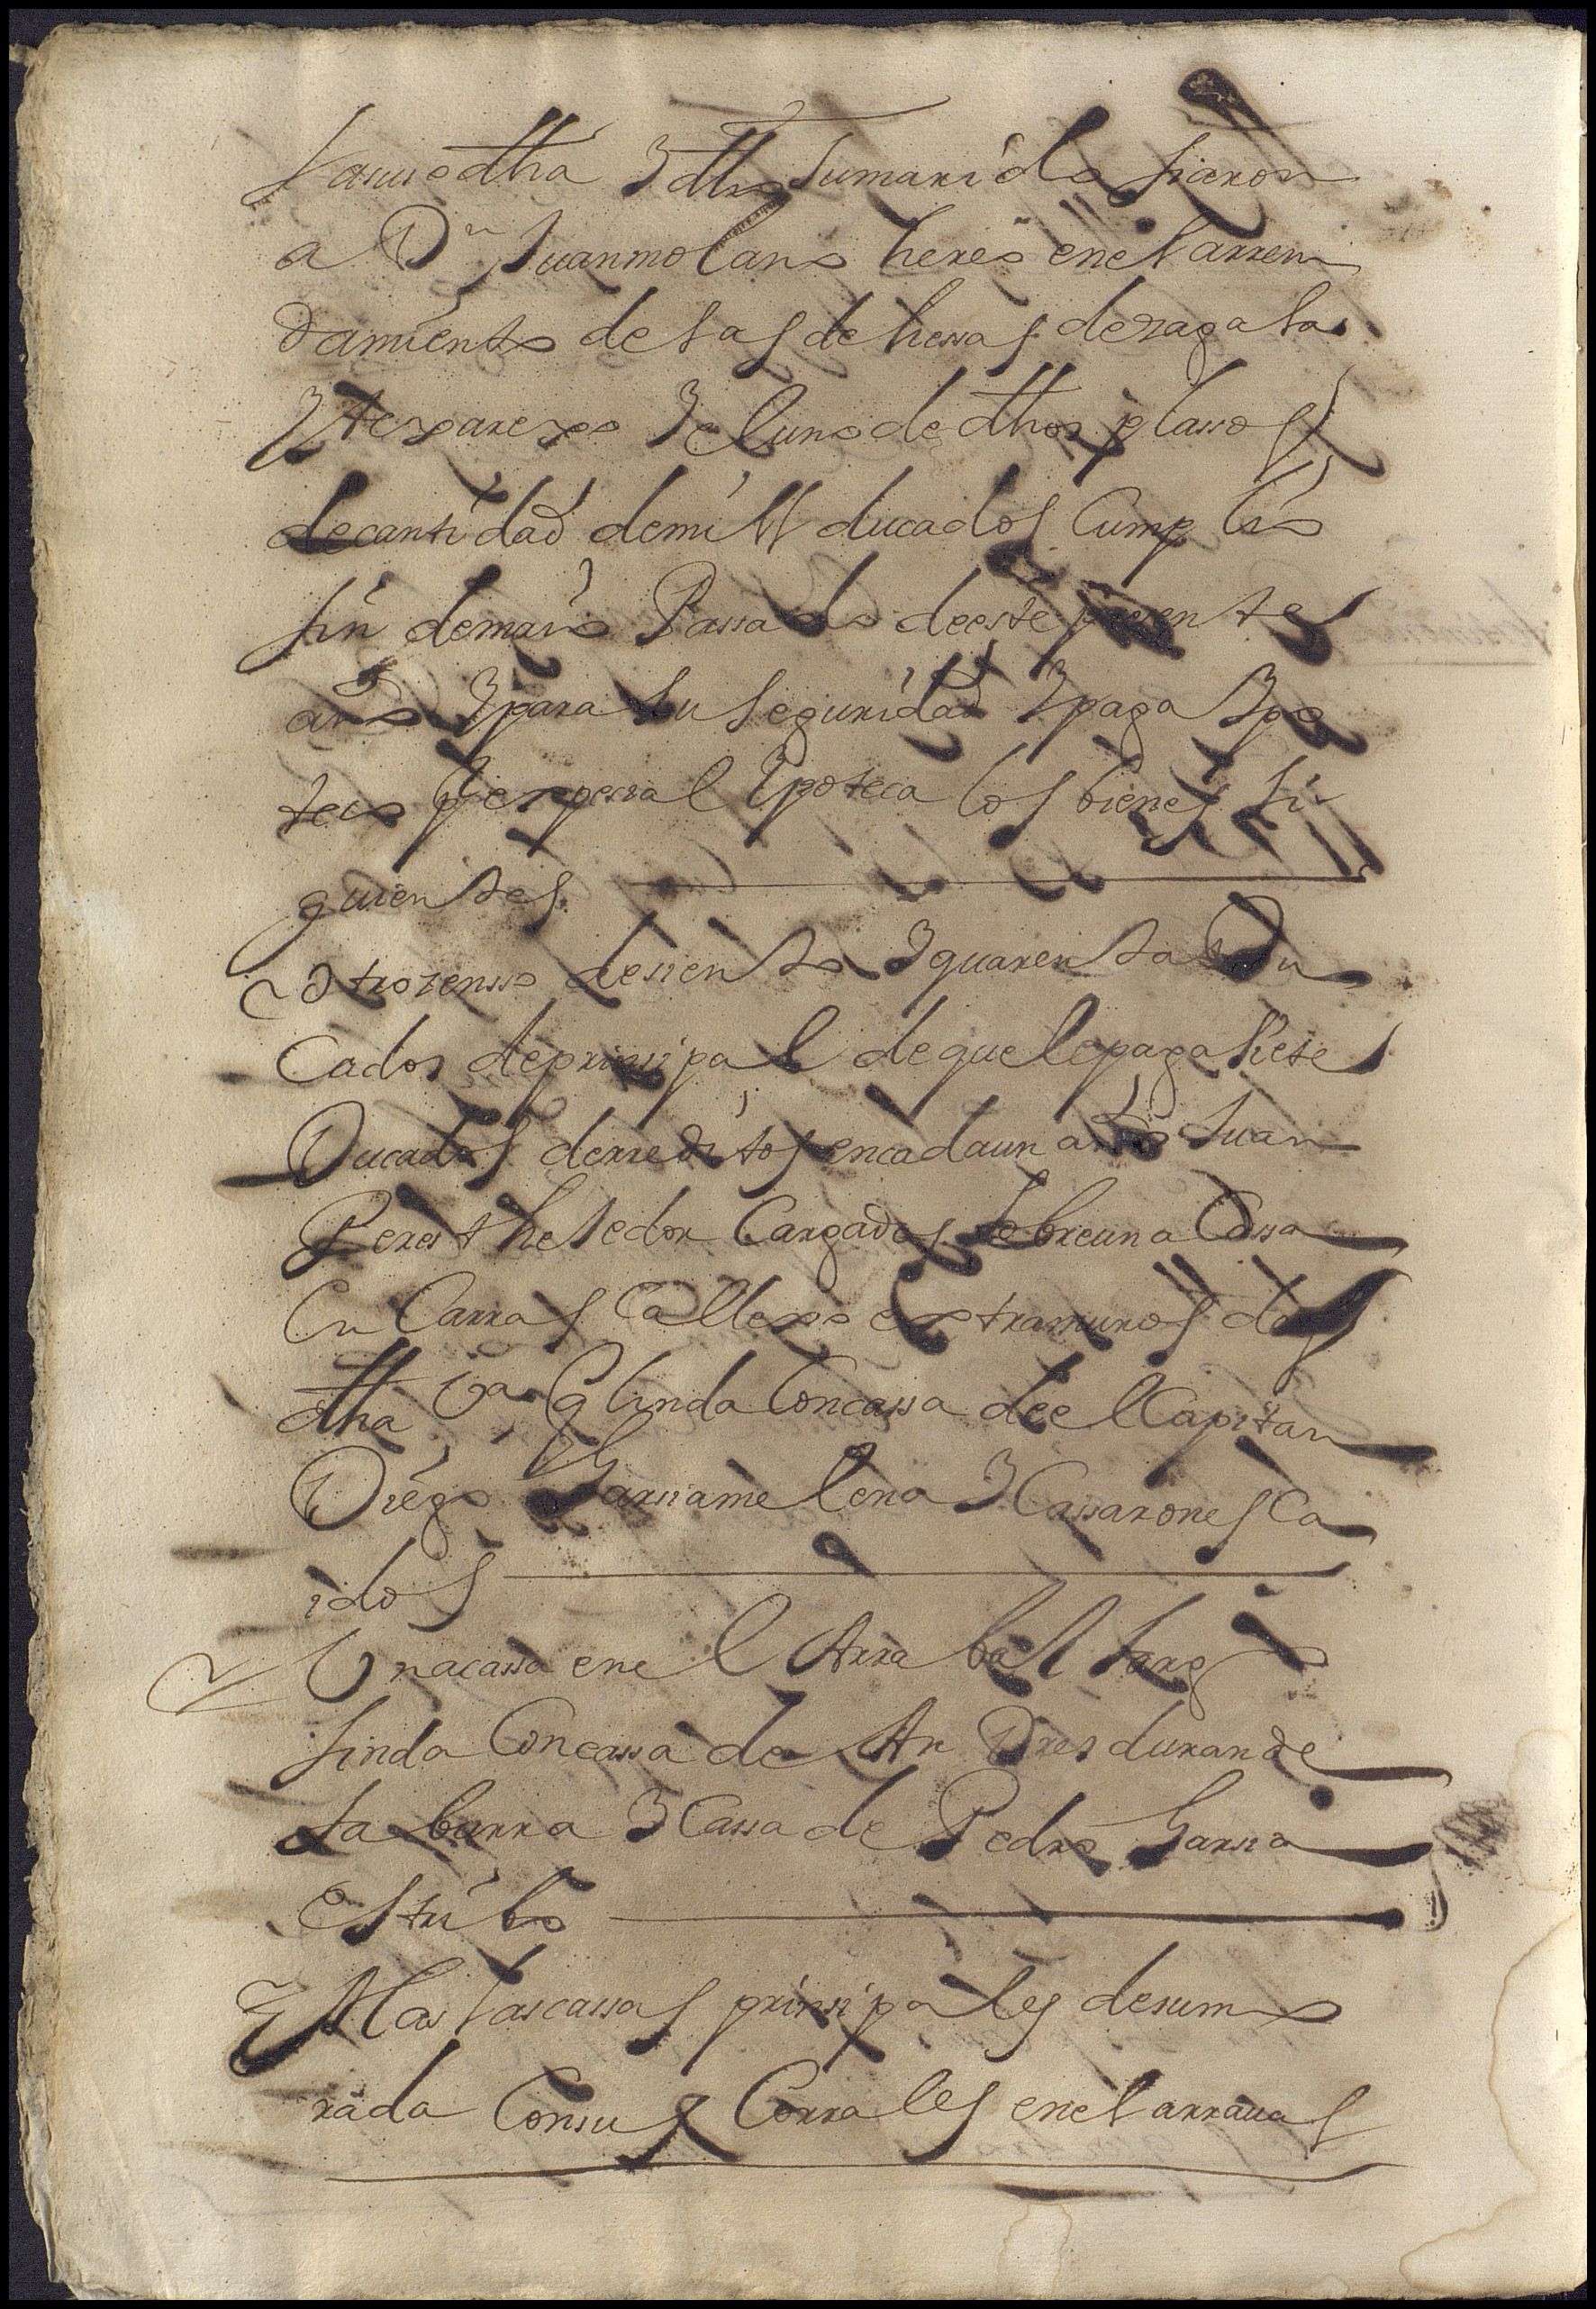 la susodha y dho su marido fiaron
a Dn Juan molano heres en el arren
damiento de las dehesas de zagala
y texarexo y el uno de dhos plassos
de cantidad de mill ducados Cumplio
fin de maio Passado de este presente
año y para su seguridad y paga ypo
teco y expesial ypoteca los bienes si
guientes
otro zensso de siento y quarenta Du
Cados de prinsipal de que le paga siete
Ducados de rreditos en cada un año Juan
Peres thexedor Cargados sobre una Cassa
En Carras Callexo extramuros de
dha va q linda Con cassa de el Capitan
Diego Garsia melena y Cassarones Ca
idos
Una cassa en el Arrabal largo
linda Con cassa de An Dres duran de
la barra y Cassa de Pedro Garsia
Estubo
Mas las cassas prinsipales de su mo
rada Con sus Corrales en el arraual